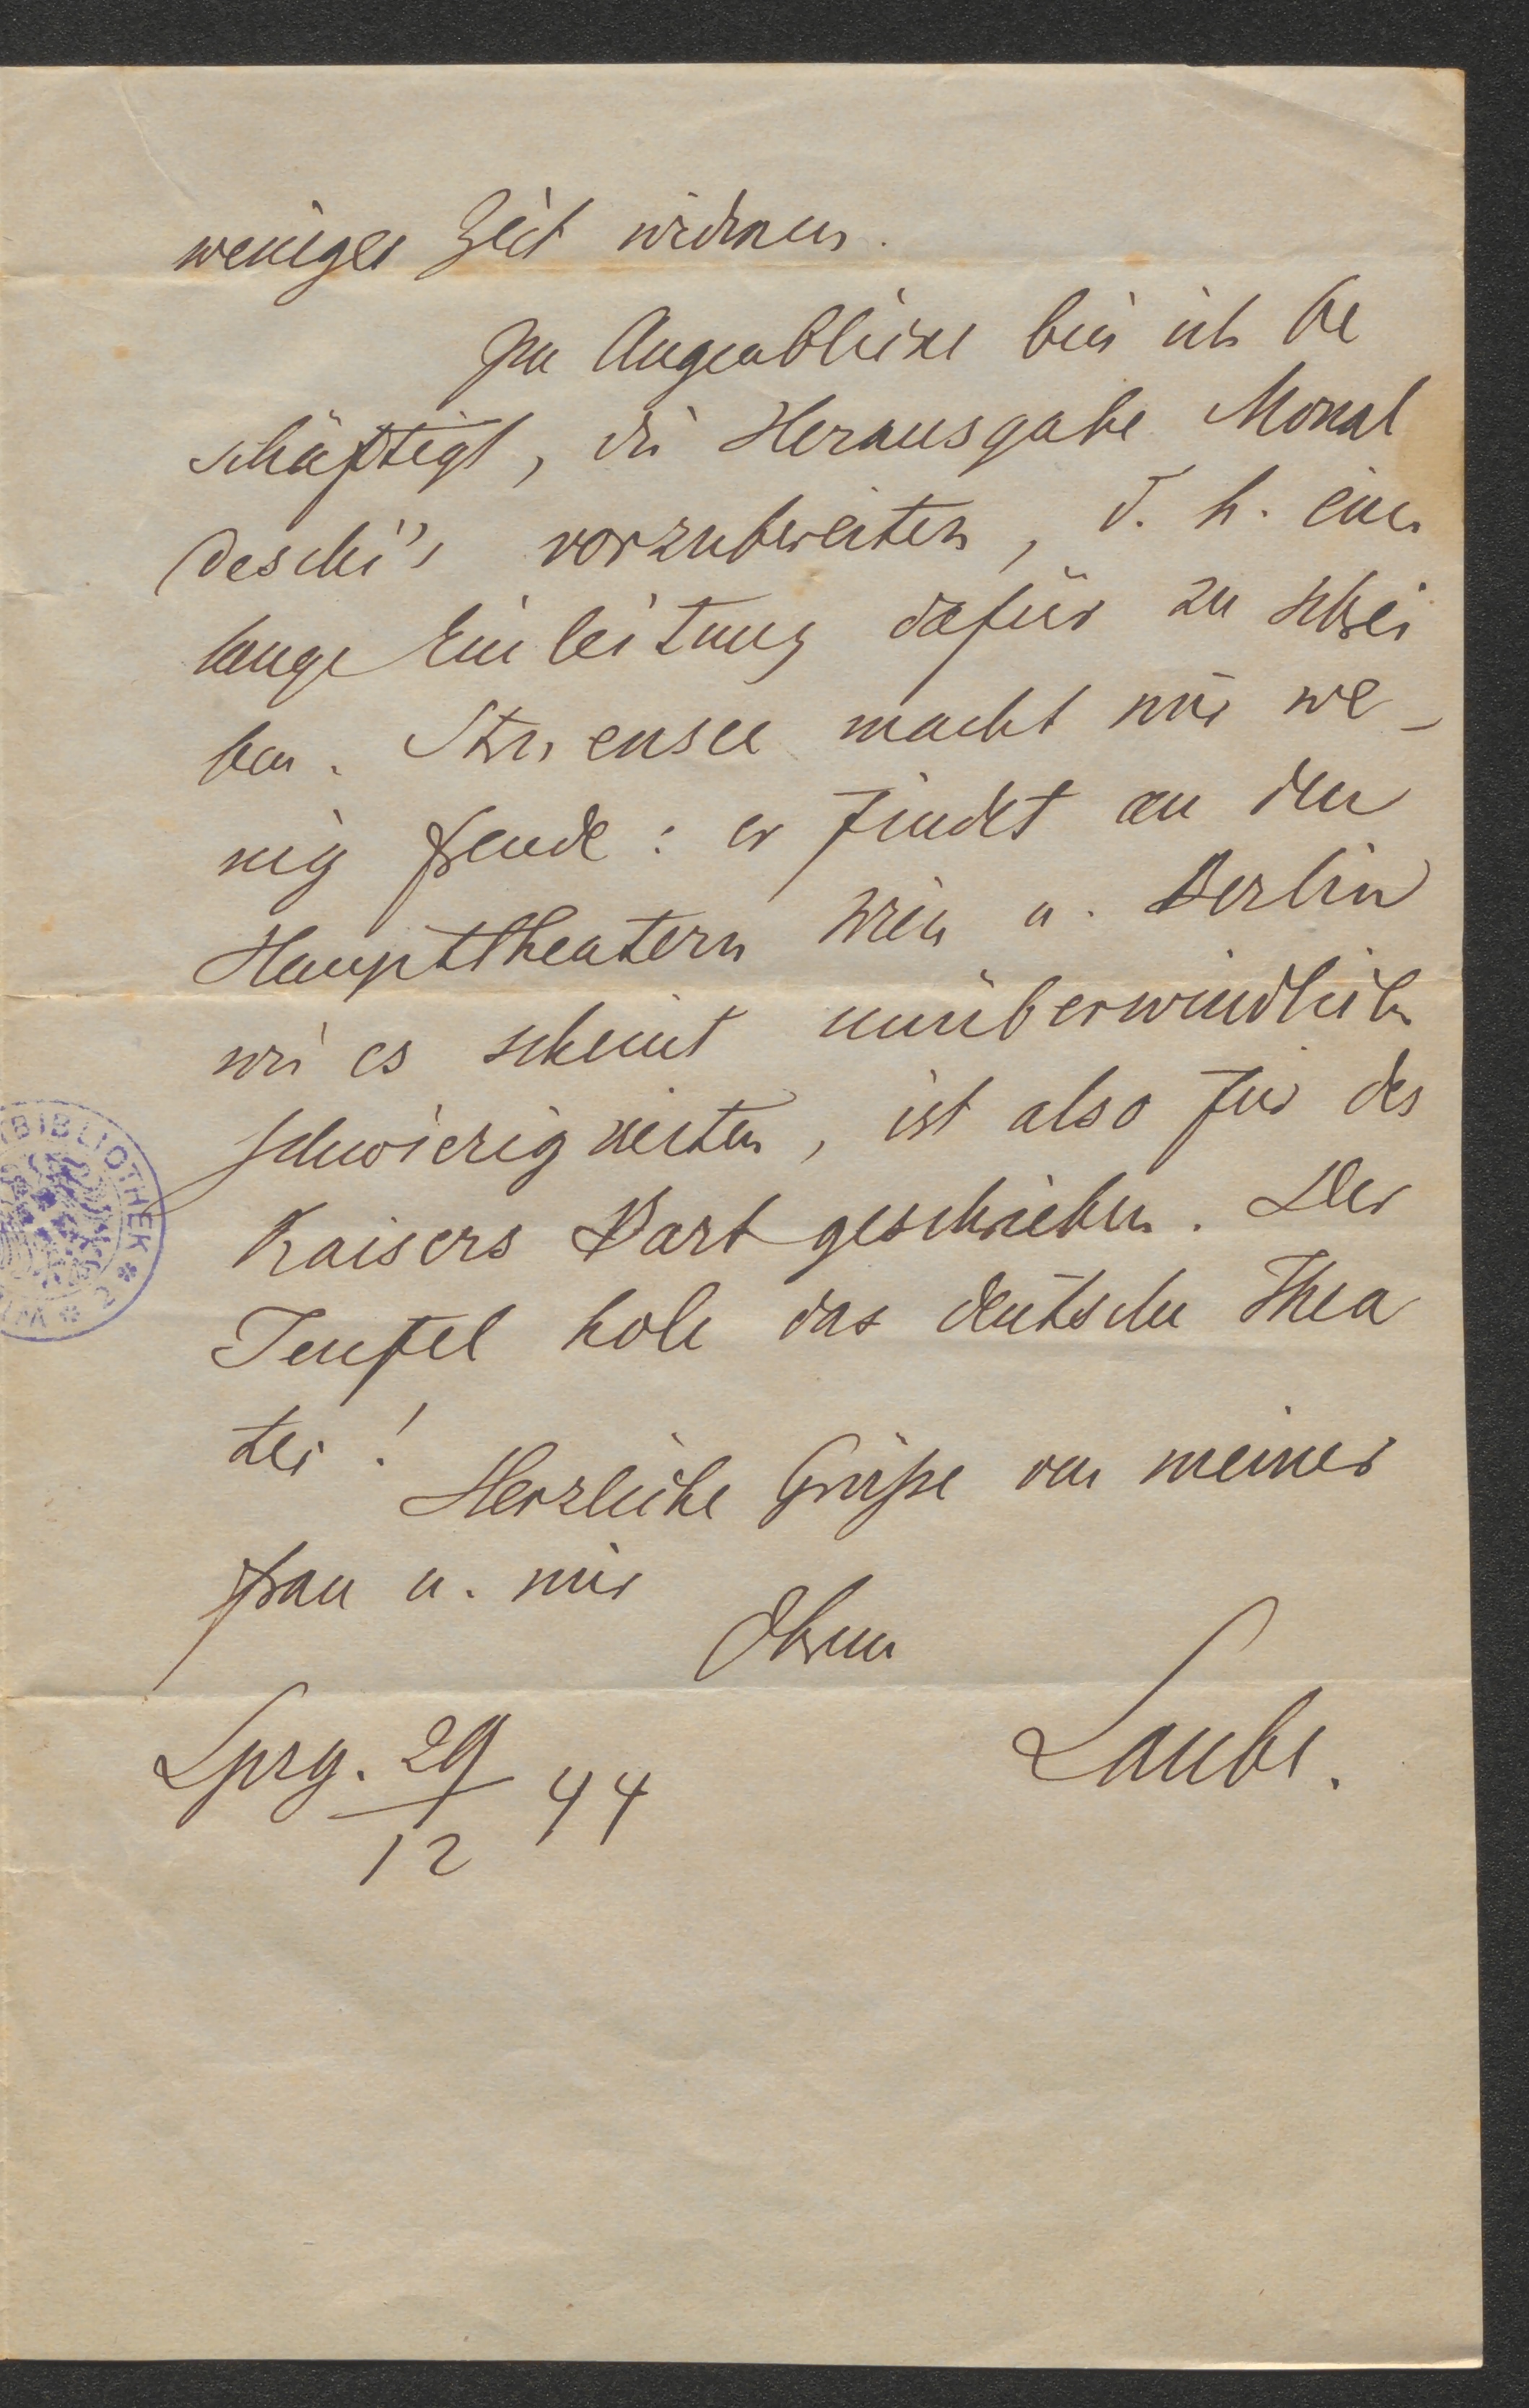 weniger Zeit widmen.
Im Augenblicke bin ich be
schäftigt, die Herausgabe Monal
deschi's vorzubereiten, d. h. eine
lange Einleitung dafür zu schrei
ben. Struensee macht mir we-
nig Freude: er findet an den
Haupttheatern Wien u. Berlin
wie es scheint unüberwindliche
Schwierigkeiten, ist also für des
Kaisers Bart geschrieben. Der
Teufel hole das deutsche Thea
ter!
Herzliche Grüße von meiner
Frau u. mir
Ihrem
Laube.
Lpzg. 29/12 44
BIBLIOTHEK